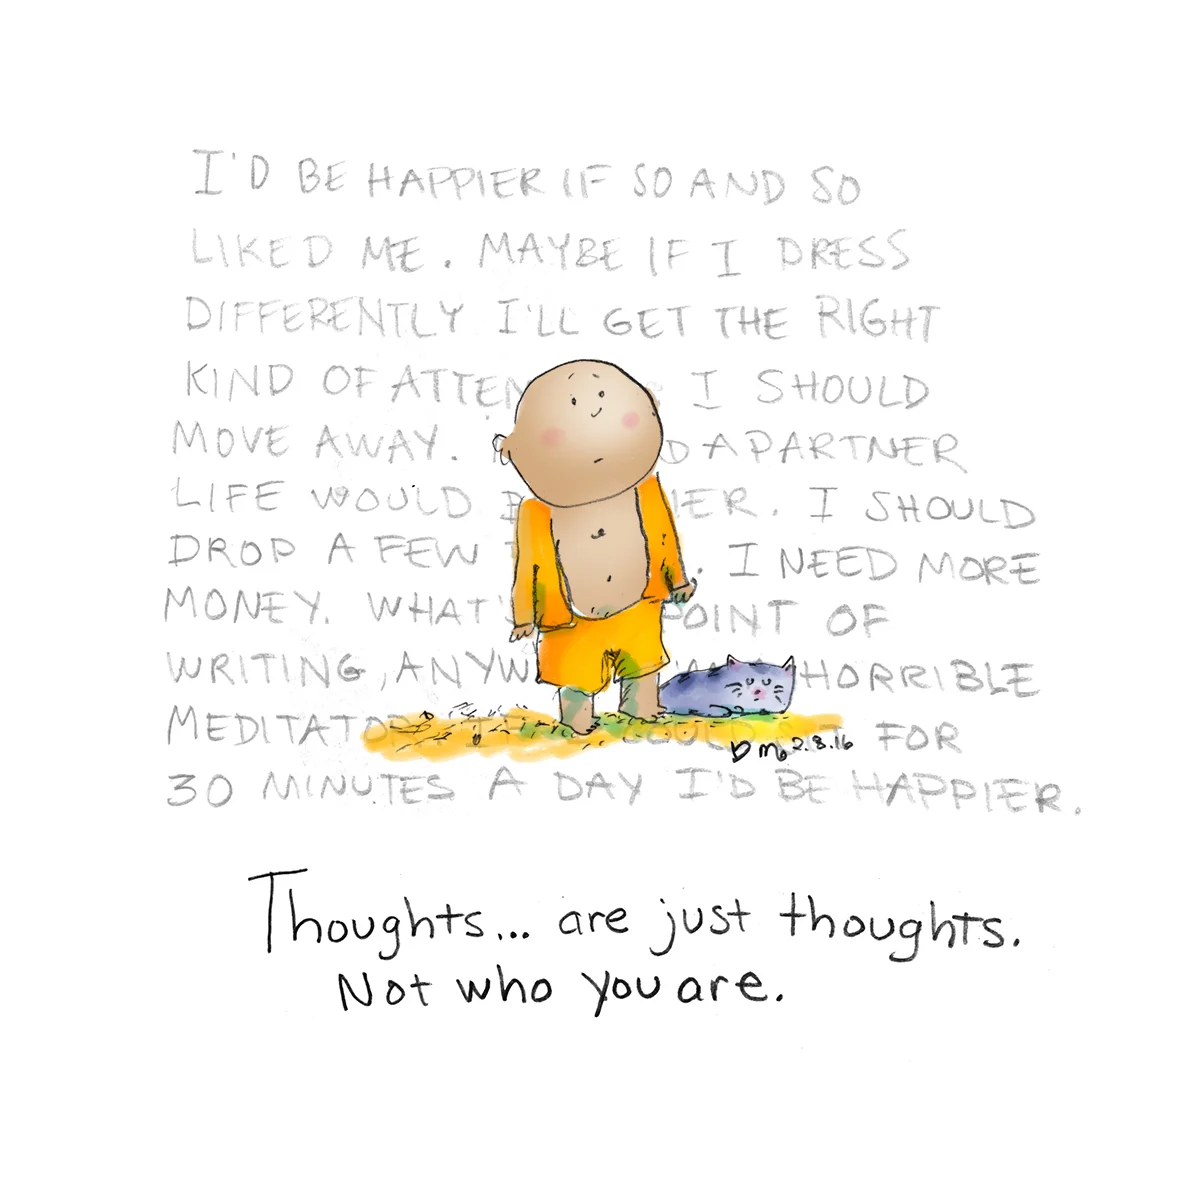 I'D BE HAPPIER IF SO AND SO
LIKED ME. MAYBE IF I DRESS
DIFFERENTLY I'LL GET THE RIGHT
KIND OF I SHOULD
MOVE AWAY. A PARTNER
LIFE WOULD I SHOULD
DROP A FEW I NEED MORE
MONEY. POINT OF
WRITING, HORRIBLE
FOR
30 MINUTES A DAY I'D BE HAPPIER.
D Mo 2.8.16
Thoughts... are just thoughts.
Not who you are.